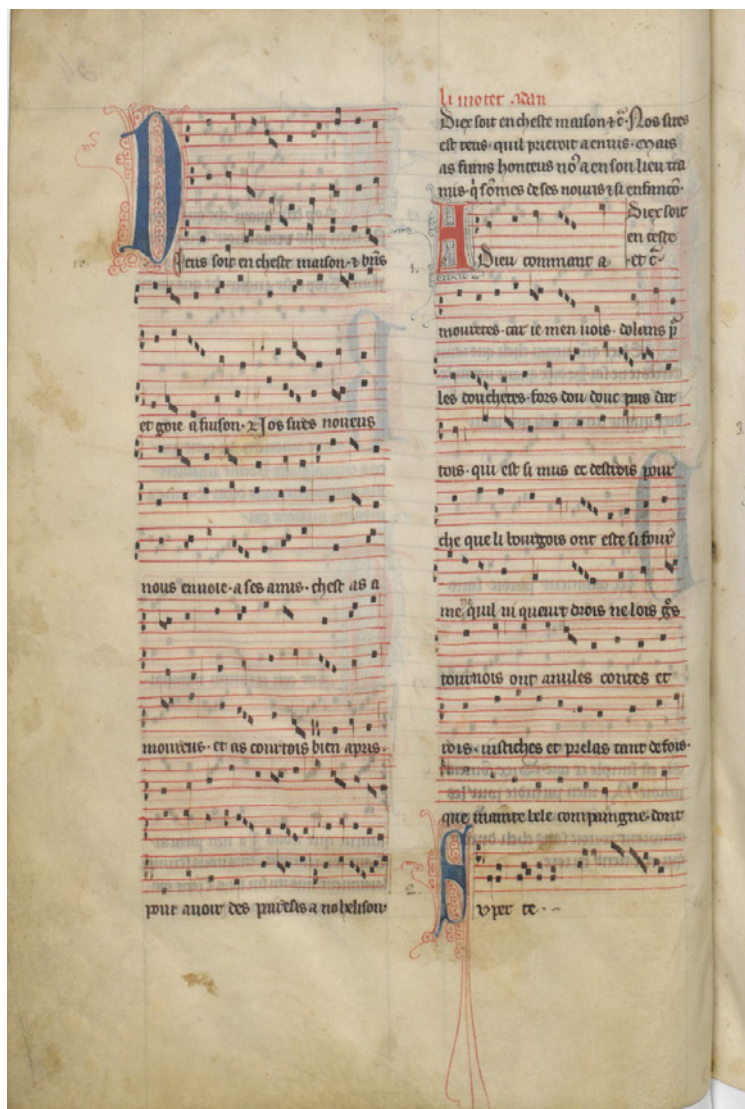 Deus soit en cheste maison ⁊ biēs
et goie a fuison ⁊ Nos sires noveus
nous envoie · a ses amis · chest as a
moureus · et as courtois bien apris ·
pour avoir des a nohelison ·
li motet adan
Diex soit en cheste maison ⁊ c̄ · Nos sires
est teus · quil prieroit a envis · Mais
as frans honteus no⁹ a en son lieu tra
mis · q̄ sōmes de ses novis ⁊ si enfancō ·
Diex soit
en ceste
A Dieu conmant a et c̄
mouretes · car ie men vois · dolans p̄
les douchetes · fors dou douc pais dar
tois · qui est si mus et destrois pour
che que li bourgois ont este si four
me ne quil ni queurt drois ne lois g̃s
tournois ont anules contes et
rois · iustiches et prelas tant de fois ·
que mainte bele compaingne · dont
Super te